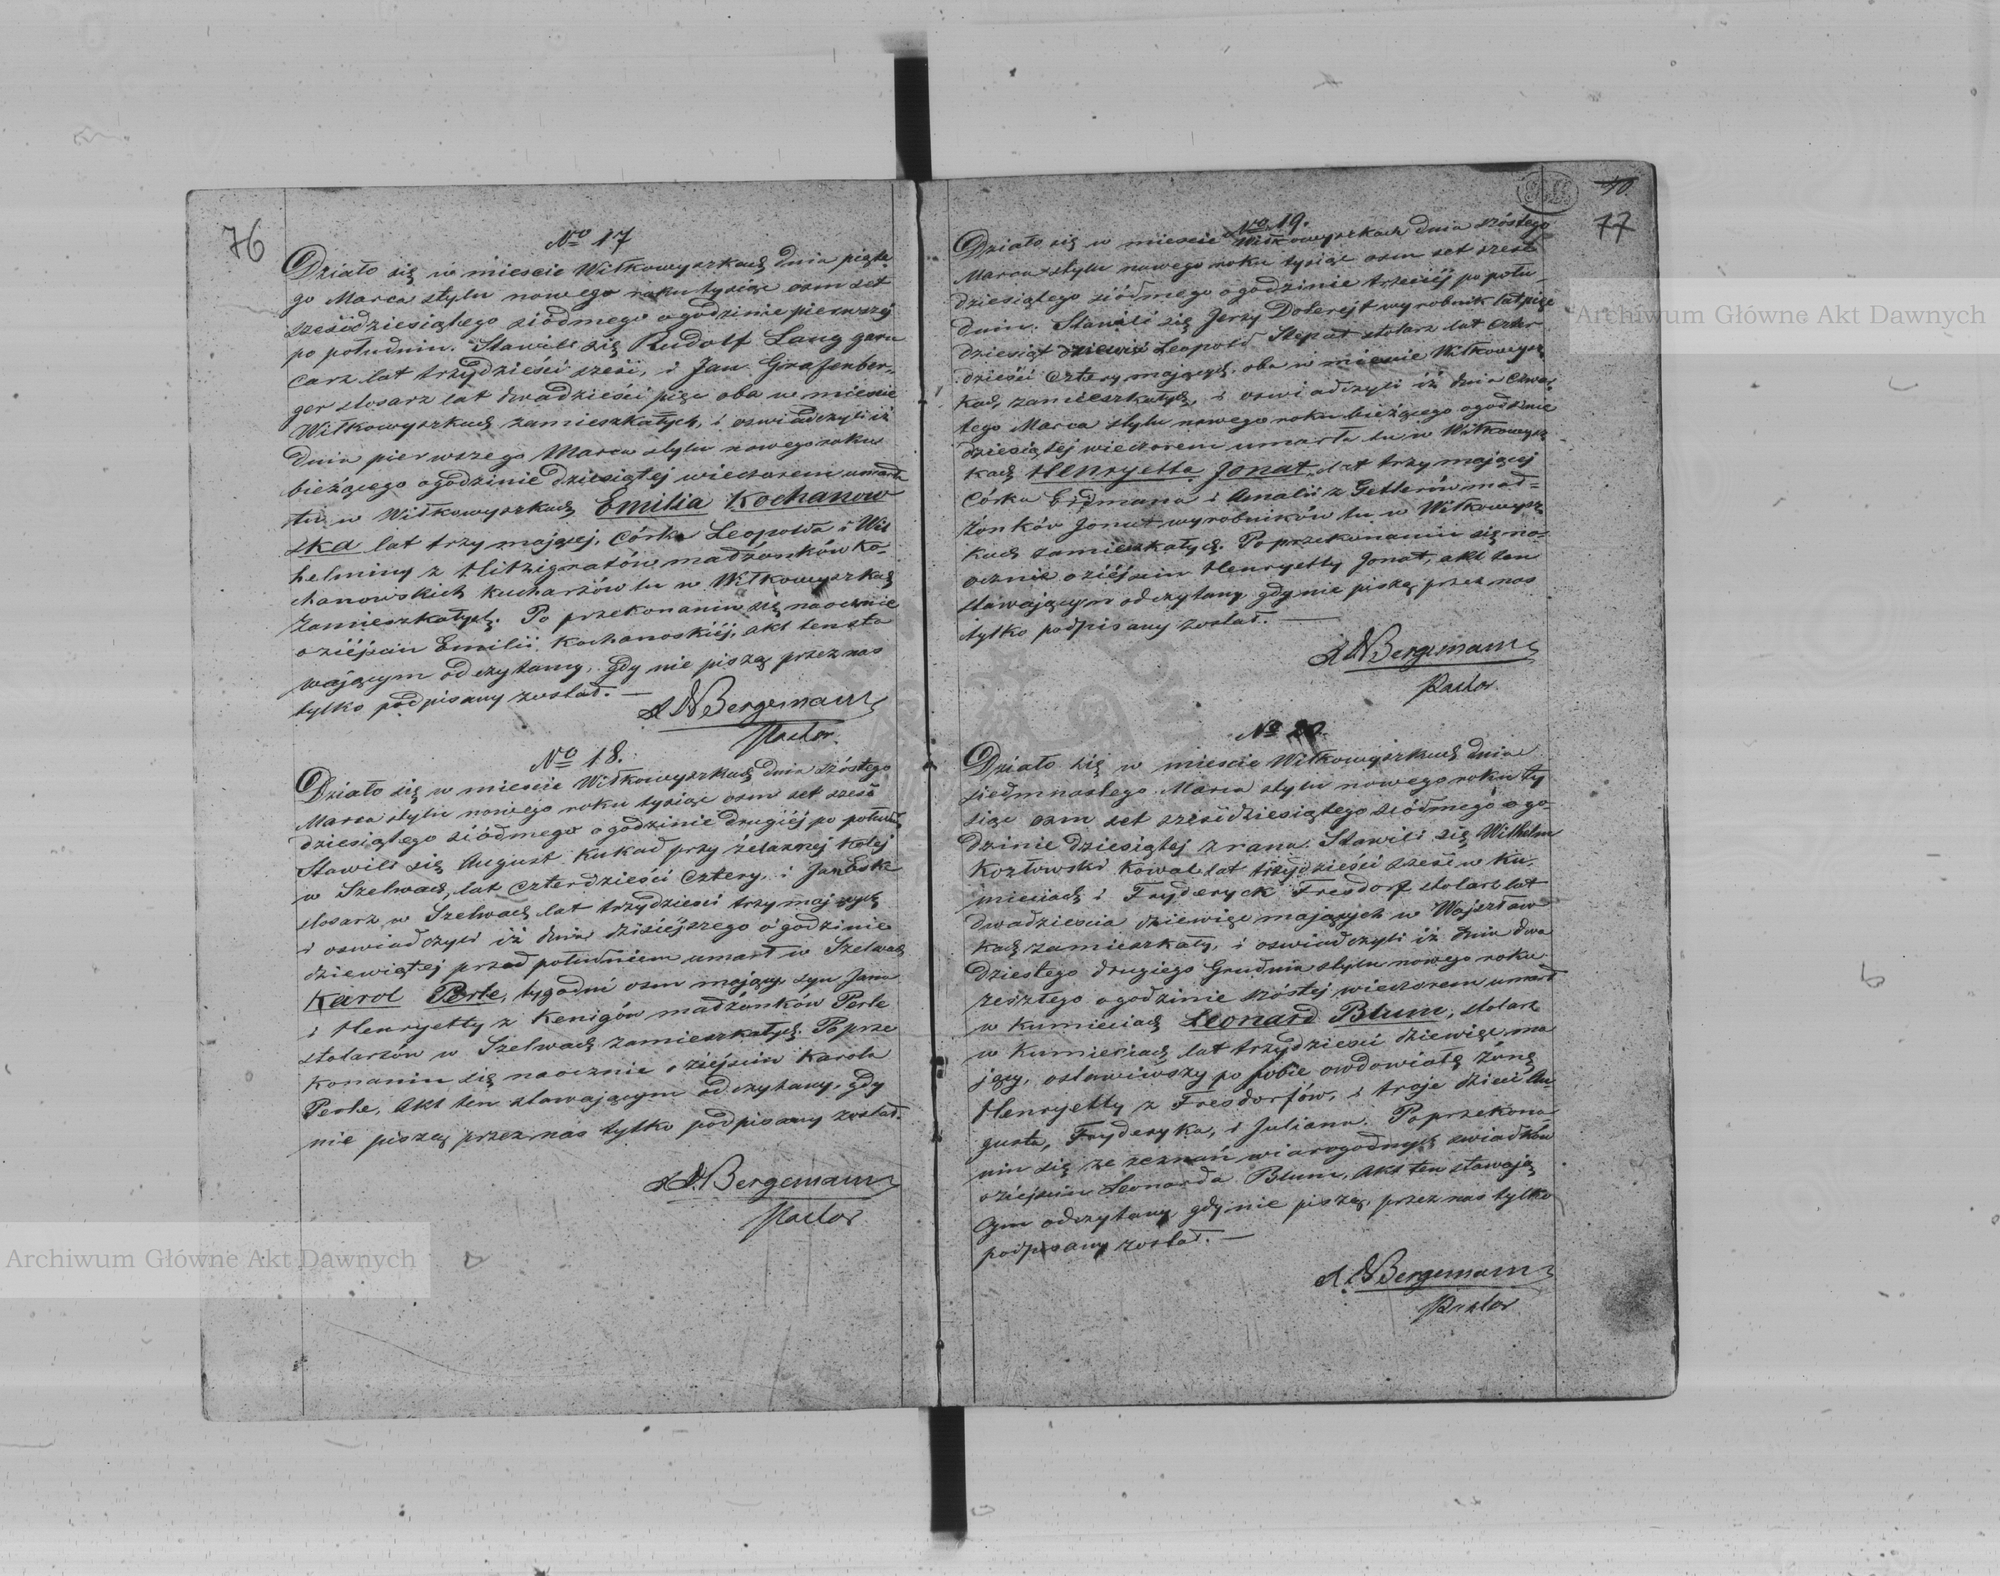 76
No 17
Działo się w miescie Wiłkowyszkach dnia piąte
go Marca stylu nowego roku tysiąc osm set
sześćdziesiątego siódmego o godzinie pierwszéj
po południu. Stawili się Rudolf Lang garn
carz lat trzydzieści sześć, i Jan Grafenber-
ger slosarz lat dwadzieści pięć oba w miescie
Wiłkowyszkach zamieszkałych, i oswiadczyli iż
dnia pierwszego Marca stylu nowego roku
bieżącego o godzinie dziesiątej wieczorem umarła
tu w Wiłkowyszkach Emilia Kochanow
ska lat trzy mającej, córka Leopolda i Wil
helminy z Hitzigratów małżonków Ko-
chanowskich kucharzów tu w Wiłkowyszkach
zamieszkałych. Po przekonaniu się naocznie
o zéjściu Emilii Kochanoskiéj, akt ten sta
wającym odczytany, gdy nie piszą przez nas
tylko podpisany został. —
Bergemann
Pastor.
No 18.
Działo się w miescie Wiłkowyszkach dnia szóstego
Marca stylu nowego roku tysiąc osm set sześć
dziesiątego siódmego o godzinie drugiéj po połud.
Stawili się August Kukad przy żelaznej kolej
w Szelwach, lat czterdzieści cztery, i Jan
slosarz w Szelwach lat trzydzieści trzy mających
i oswiadczyli iż dnia dzisiéjszego o godzinie
dziewiątej przed południem umarł w Szelwach
Karol Perle, tygodni osm mający, syn Jana
i Henryetty z Kenigów małżonków Perle
stolarzów w Szelwach zamieszkałych. Po prze
konaniu się naocznie o zéjściu Karola
Perle, akt ten stawającym odczytany, gdy
nie piszą przez nas tylko podpisany został.
Bergemann
Pastor
10.
77
No 19.
Działo się w miescie Wiłkowyszkach dnia szóstego
Marca stylu nowego roku tysiąc osm set sześć
dziesiątego siódmego o godzinie trzeciéj po połu-
dniu. Stawili się Jerzy Doterejt wyrobnik lat pięć
dziesiąt dziewięć Leopold Stepat stolarz lat czter
dzieści cztery mających, oba w miescie Wiłkowysz
kach zamieszkałych, i oswiadczyli iż dnia czwar
tego Marca stylu nowego roku bieżącego o godzinie
dziesiątej wieczorem umarła tu w Wiłkowysz
kach Henryetta Jonat, lat trzy mającej
córka Erdmana i Amalii z Getlerów mał-
żonków Jonat wyrobników tu w Wiłkowysz
kach zamieszkałych. Po przekonaniu się na-
ocznie o zéjściu Henryetty Jonat, akt ten
stawającym odczytany, gdy nie piszą przez nas
tylko podpisany został. —
Bergemann
Pastor.
No 20.
Działo się w miescie Wiłkowyszkach dnia
siedmnastego Marca stylu nowego roku ty
siąc osm set sześćdziesiątego siódmego o go-
dzinie dziesiątej z rana. Stawili się Wilhelm
Kozłowski kowal lat trzydzieści sześć w Ku
mieciach i Fryderyck Fresdorf stolarz lat
dwadzieścia dziewięć mających w Wojszław
kach zamieszkały, i oswiadczyli iż dnia dwa
dziestego drugiego Grudnia stylu nowego roku
zeszłego o godzinie szóstej wieczorem umarł
w Kumieciach Leonard Blum, stolarz
w Kumieciach lat trzydzieści dziewięć ma
jący, ostawiwszy po sobie owdowiałą żonę
Henryetty z Fresdorfów, i troje dzieci Au-
gusta, Fryderyka, i Juliana. Po przekona
niu się ze zeznań wiarogodnych swiadków
o zéjściu Leonarda Blum, akt ten stawają
cym odczytany gdy nie piszą, przez nas tylko
podpisany został. —
Bergemann
Pastor
Archiwum Główne Akt Dawnych
Archiwum Główne Akt Dawnych